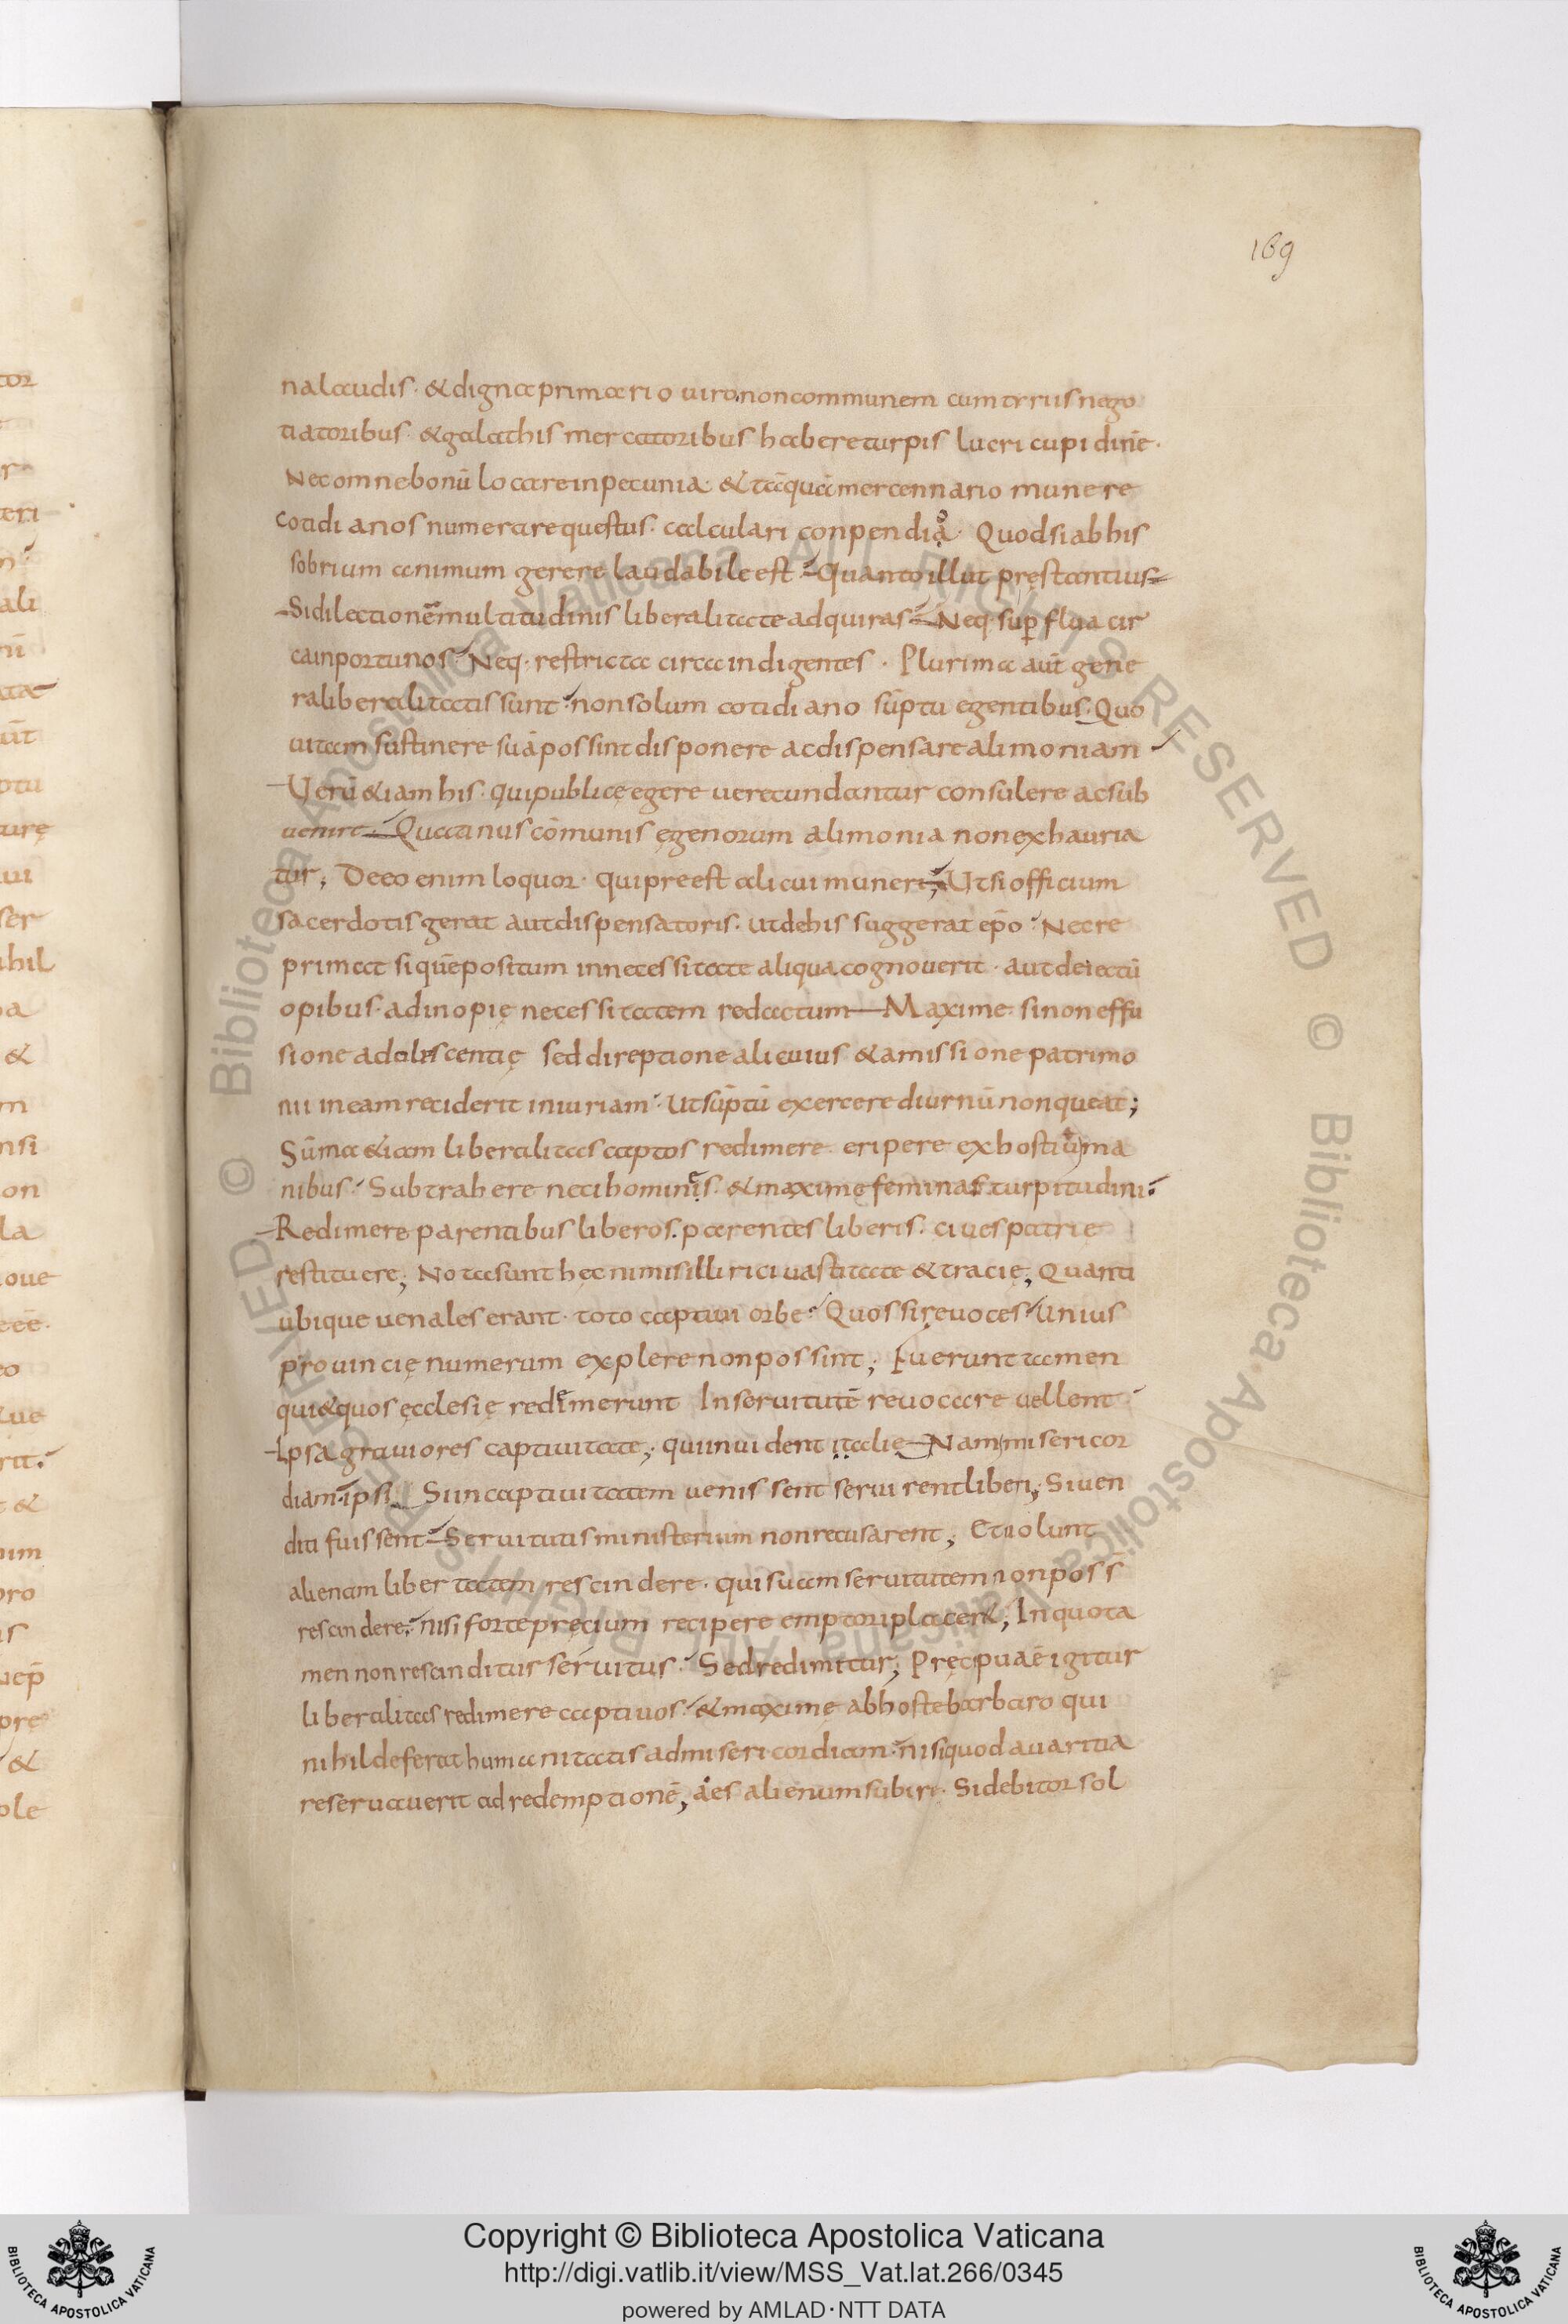 169
na laudis · & digna primario uiro · non communem cum tyriis nego
tiatoribus · & galathis mercatoribus habere turpis lucri cupidinē ·
Nec omne bonū locare in pecunia · & tāquā mercennario munere
cotidianos numerare questus · calculari conpendia · Quod si ab his
sobrium animum gerere laudabile est · Quanto illut pręstantius
Si dilectionē multitudinis liberalitate adquiras · Neq· suꝑflua cir
ca inportunos · Neq· restricta circa indigentes · Plurima aūt gene
ra liberalitatis sunt · non solum cotidiano sūptu egentibus · Quo
uitam sustinere suā possint disponere ac dispensare alimoniam
Uerū &iam his · qui publicę egere uerecundantur consulere ac sub
uenire · Quatinus cōmunis egenorum alimonia non exhauria
tur; De eo enim loquor · qui preest alicui muneri; Ut si officium
sacerdotis gerat aut dispensatoris · ut de his suggerat ep̄o · Nec re
primat si quē positum in necessitate aliqua cognouerit · aut deiectū
opibus · ad inopię necessitatem redactum — Maxime · si non effu
sione adoliscentię sed direptione alicuius & amissione patrimo
nii in eam reciderit iniuriam · Ut sūptū exercere diurnū non queat;
Sūma &iam liberalitas captos redimere · eripere ex hostiū ma
nibus · Subtrahere neci hominis · & maximę feminas turpitudini ·
Redimere parentibus liberos · parentes liberis · ciues patrię
restituere; Nota sunt hęc nimis illirici uastitate & tracię; Quanti
ubique uenales erant · toto captiui orbe · Quos si reuoces · Unius
prouincię numerum explere non possint; Fuerunt tamen
qui & quos ęcclesię redimerunt In seruitutē reuocare uellent ·
Ipsa grauiores captiuitate; qui inuident italie — Nam misericor
diam · ipsi Si in captiuitatem uenissent seruirent liberi; Si uen
diti fuissent — Seruitutis ministerium non recusarent; Et uolunt
alienam libertatem rescindere · qui suam seruitutem non poss̄
rescindere · nisi forte precium recipere emptori placer&; In quo ta
men non rescinditur seruitus · Sed redimitur; Pręcipua ē igitur
liberalitas redimere captiuos · & maximę ab hoste barbaro qui
nihil deferat humanitatis ad misericordiam · nisi quod auaritia
reseruauerit ad redemptionē; aes alienum subire · Si debitor sol
Copyright © Biblioteca Apostolica Vaticana
http://digi.vatlib.it/view/MSS_Vat.lat.266/0345
powered by AMLAD·NTT DATA